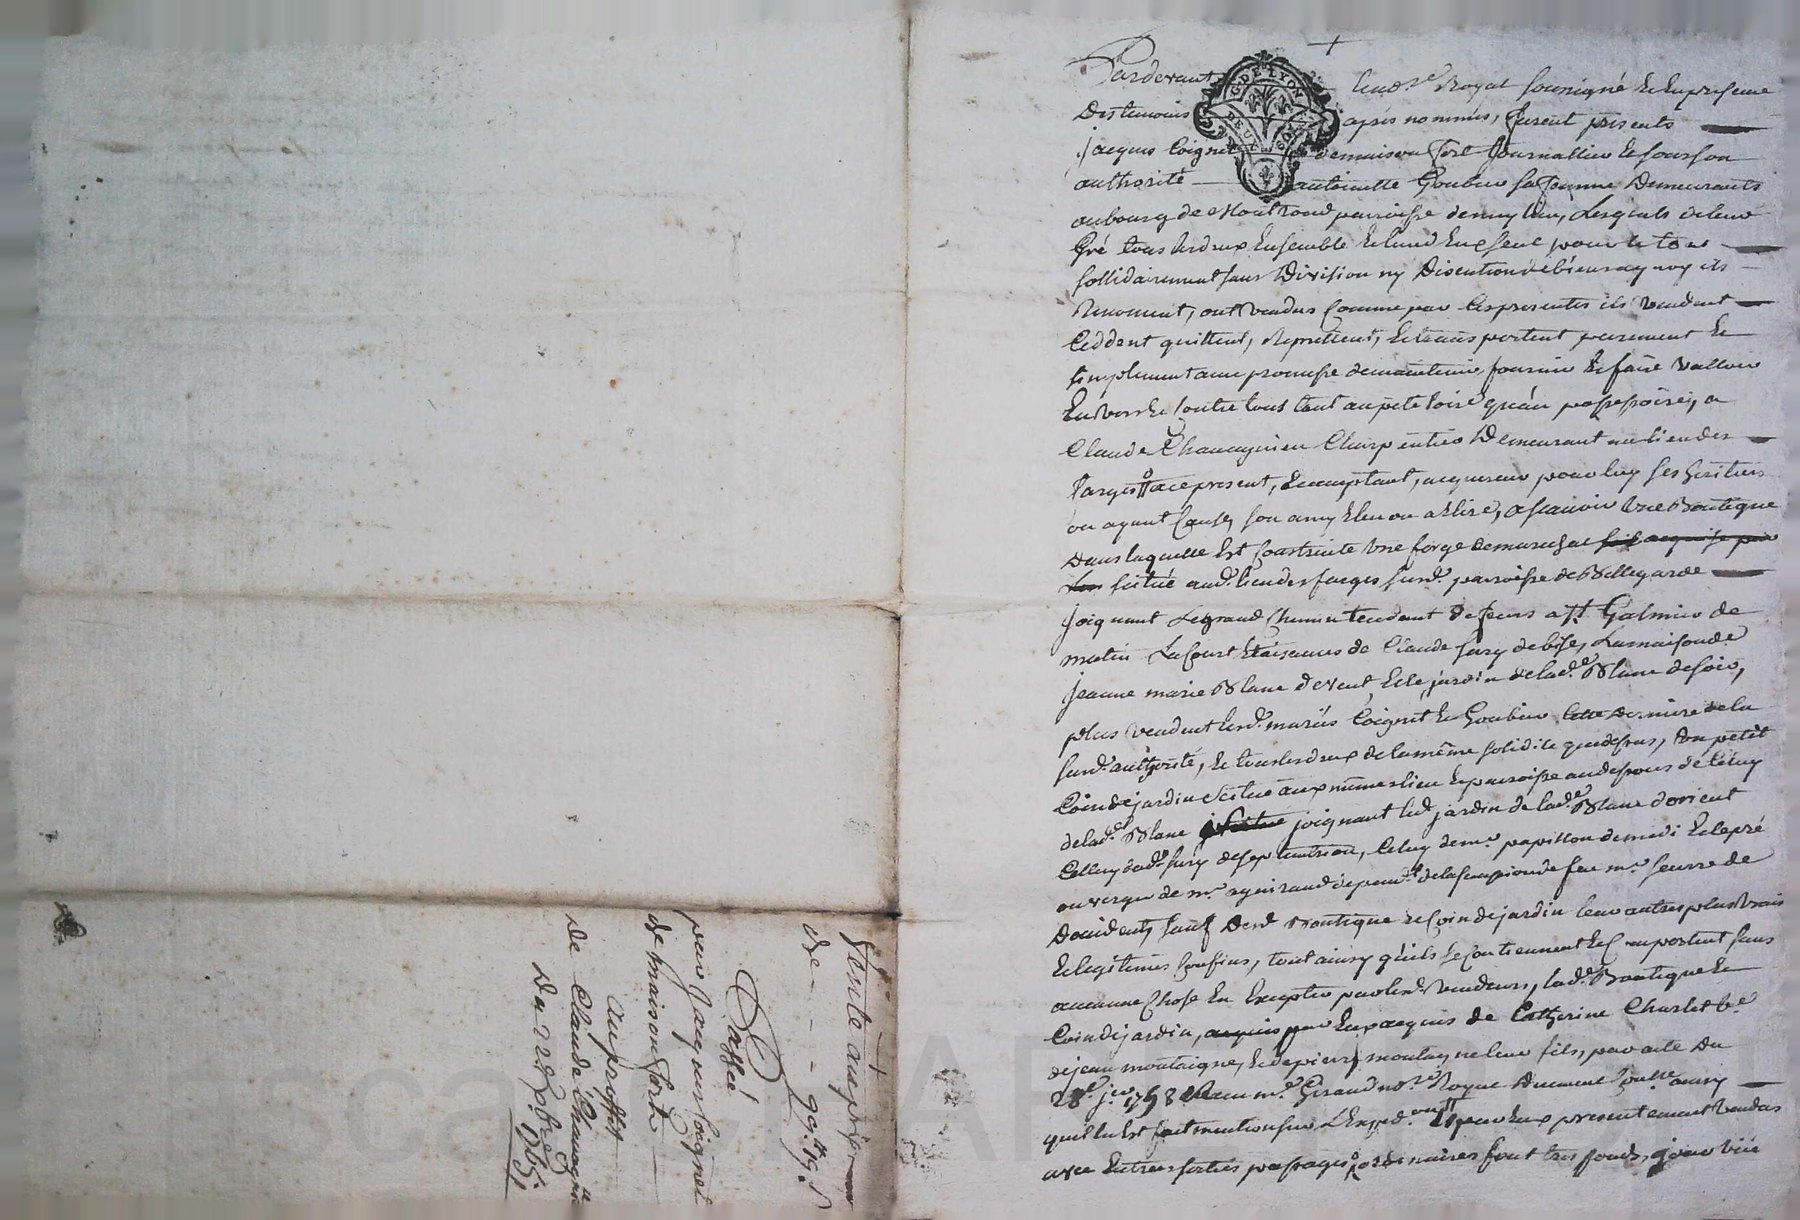 Pardevant le nore Royal soussigné Et En presence
Des temoins après nommés, furent presents
jacques Coignet de maison fort journallier Et sous son
authorité antoinette Goubier sa femme Demeurants
au bourg de Montrond parroisse de meylieu, Lesquels de leur
Gré tous les deux Ensemble Et l'und Eux seul pour le tout
sollidairement sans Division ny Discution de biens a quoy ils
Renoncent, ont vendus Comme par Ces presentes ils vendent
Ceddent quittent, Remettent, Et transportent purement Et
simplement avec promesse de maintenir fournir Et faire valloir
Envers Et Contre tous tant au petitoire qu'au possessoire, a
Claude Chavagnieu Charpentier Demeurant au lieu des
farges a ce present, Et acceptant, acquereur pour luy ses heritiers
ou ayant Cause, son amy Eleu ou a Elire, a scavoir Une Boutique
Dans laquelle Est Construite Une forge de marechal soit acquise par
situé aud. lieu des farges surd. parroisse de Bellegarde
joignant Le grand Chemin tendant de feurs a St Galmier de
matin La Court Et aisances de Claude Jury de bise, La maison de
jeanne marie Blanc de vent Et le jardin de lade Blanc de soir,
plus vendent lesd. mariés Coignet Et Goubier Cette Derniere de la
surd. authorité, Et tous les deux de la même solidité que dessus, Un petit
Coin de jardin scitué aux mêmes lieu Et parroisse au dessous de Celuy
de lade Blanc joignant led. jardin de lade Blanc d'orient
Celluy dud. Jury de septentrion, Celuy de mr papillon de midi Et le pré
ou verger de mr aguiraud dependt de la succession de feu mr seurre de
Doccident, sauf Desd. Boutique Et Coin de jardin leurs autres plus vrais
Et legitimes Confins, tout ainsy qu'ils se Contiennent Et se Comportent sans
aucunne Chose En Excepter par lesd. vendeurs, lad. Boutique Et
Coin de jardin, acquis par Eux acquis de Catherine Charlet ve
de jean montaigne, Et de pierre montagne leur fils, par acte Du
28e jer 1758 Reçu me Giraud nore Royal Duement Conllé ainsy
qu'il En Est fait mention sur L'Exped. par Eux presentement vendus
avec Entrées sorties passages ordinaires font tres fonds, jouir vuie
Vente au prix
de - - - 99.tt 19.s
Passée
par Jacques Coignet
de maison forte
Au proffit
De Claude Chavagnieu
Du 22e 9bre 1765
G. DE LYON
DEUX SOLS